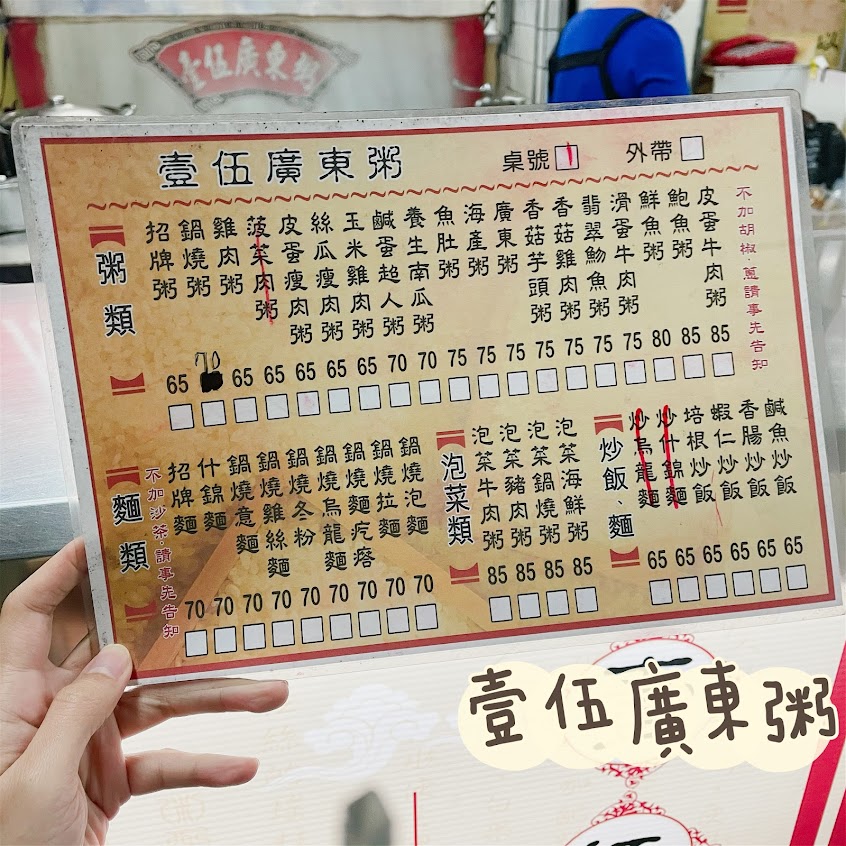 壹伍廣東粥
壹伍廣東粥
桌號 1
外帶
粥類
招牌粥
鍋燒粥
雞肉粥
菠菜肉粥
皮蛋瘦肉粥
絲瓜瘦肉粥
玉米雞肉粥
鹹蛋超人粥
養生南瓜粥
魚肚粥
海產粥
廣東粥
香菇芋頭粥
香菇雞肉粥
翡翠魩魚粥
滑蛋牛肉粥
鮮魚粥
鮑魚粥
皮蛋牛肉粥
不加胡椒.蔥請事先告知
65 70 65 65 65 65 65 70 70 75 75 75 75 75 75 75 80 85 85
麵類
不加沙茶.請事先告知
招牌麵
什錦麵
鍋燒意麵
鍋燒雞絲麵
鍋燒冬粉
鍋燒烏龍麵
鍋燒麵疙瘩
鍋燒拉麵
鍋燒泡麵
70 70 70 70 70 70 70 70 70
泡菜類
泡菜牛肉粥
泡菜豬肉粥
泡菜鍋燒粥
泡菜海鮮粥
85 85 85 85
炒飯、麵
炒烏龍麵
炒什錦麵
培根炒飯
蝦仁炒飯
香腸炒飯
鹹魚炒飯
65 65 65 65 65 65
壹伍廣東粥